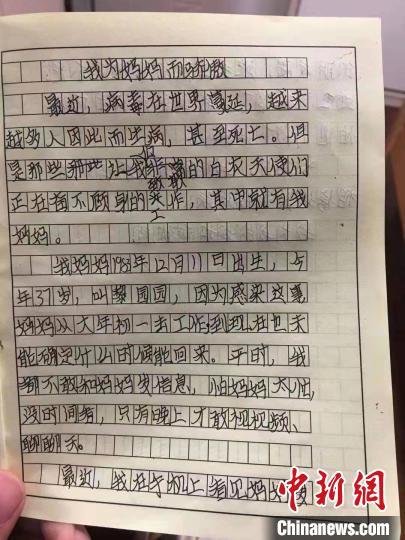 我为妈妈而骄傲
最近，病毒在世界蔓延，越来
越多人因此而生病，甚至死亡。但
是那些让我们敬的白衣天使们
正在奋不顾身的工作，其中就有我
妈妈。
我妈妈1983年12月11日出生，今
年37岁，叫黎园园，因为感染这事
妈妈从大年初一去工作，到现在也未
能确定什么时候能回来。平时，我
都不敢和妈妈发信息，怕妈妈太忙，
没时间看，只有晚上才敢视视频、
聊聊天。
最近，我在手机上看见妈妈变
中新网
Chinanews.com